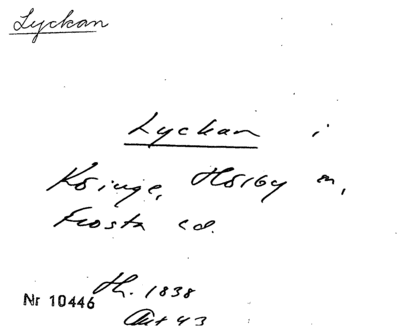 Lyckan
Lyckan i
Köinge, Hörby sn,
Frosta hd.
Th. 1838
Nr 10446
Akt 43